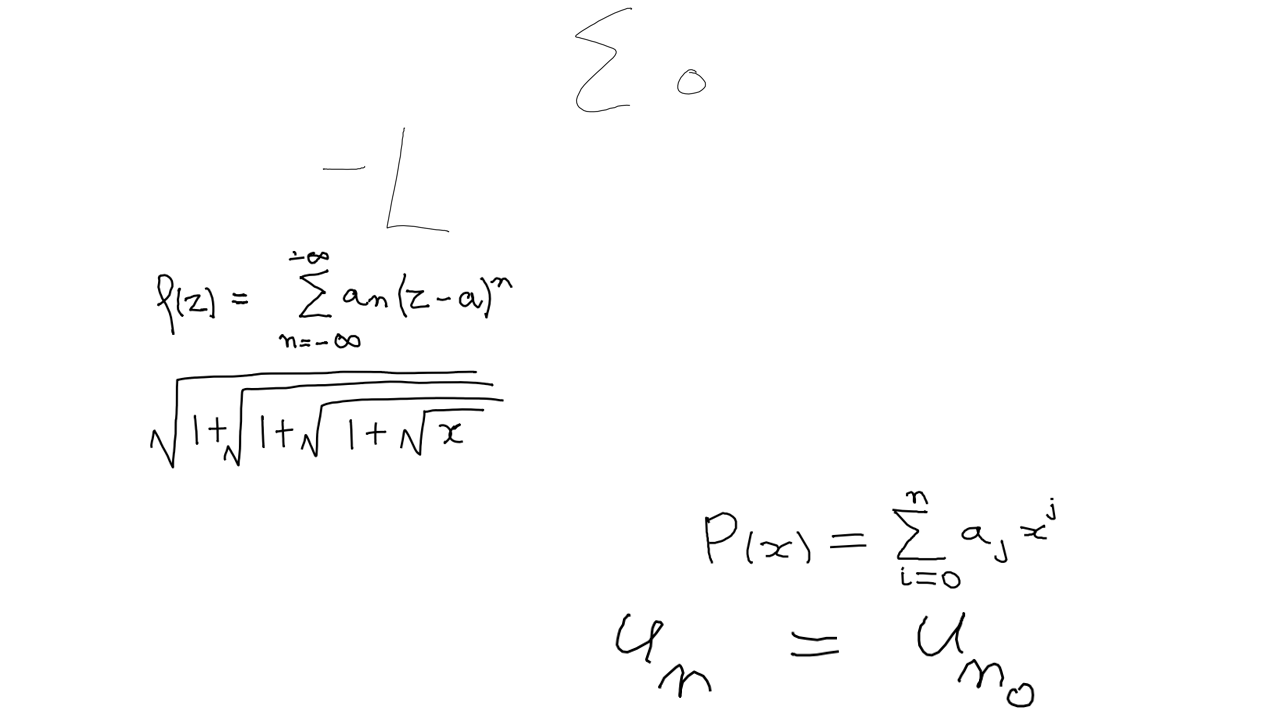 Σ 0
-L
f(z) = \sum_{n=-∞}^{-∞} an(z-a)^n
\sqrt{1+\sqrt{1+\sqrt{1+\sqrt{x}}}}
P(x) = \sum_{i=0}^{n} a_j x^j
u_n = u_{n_0}